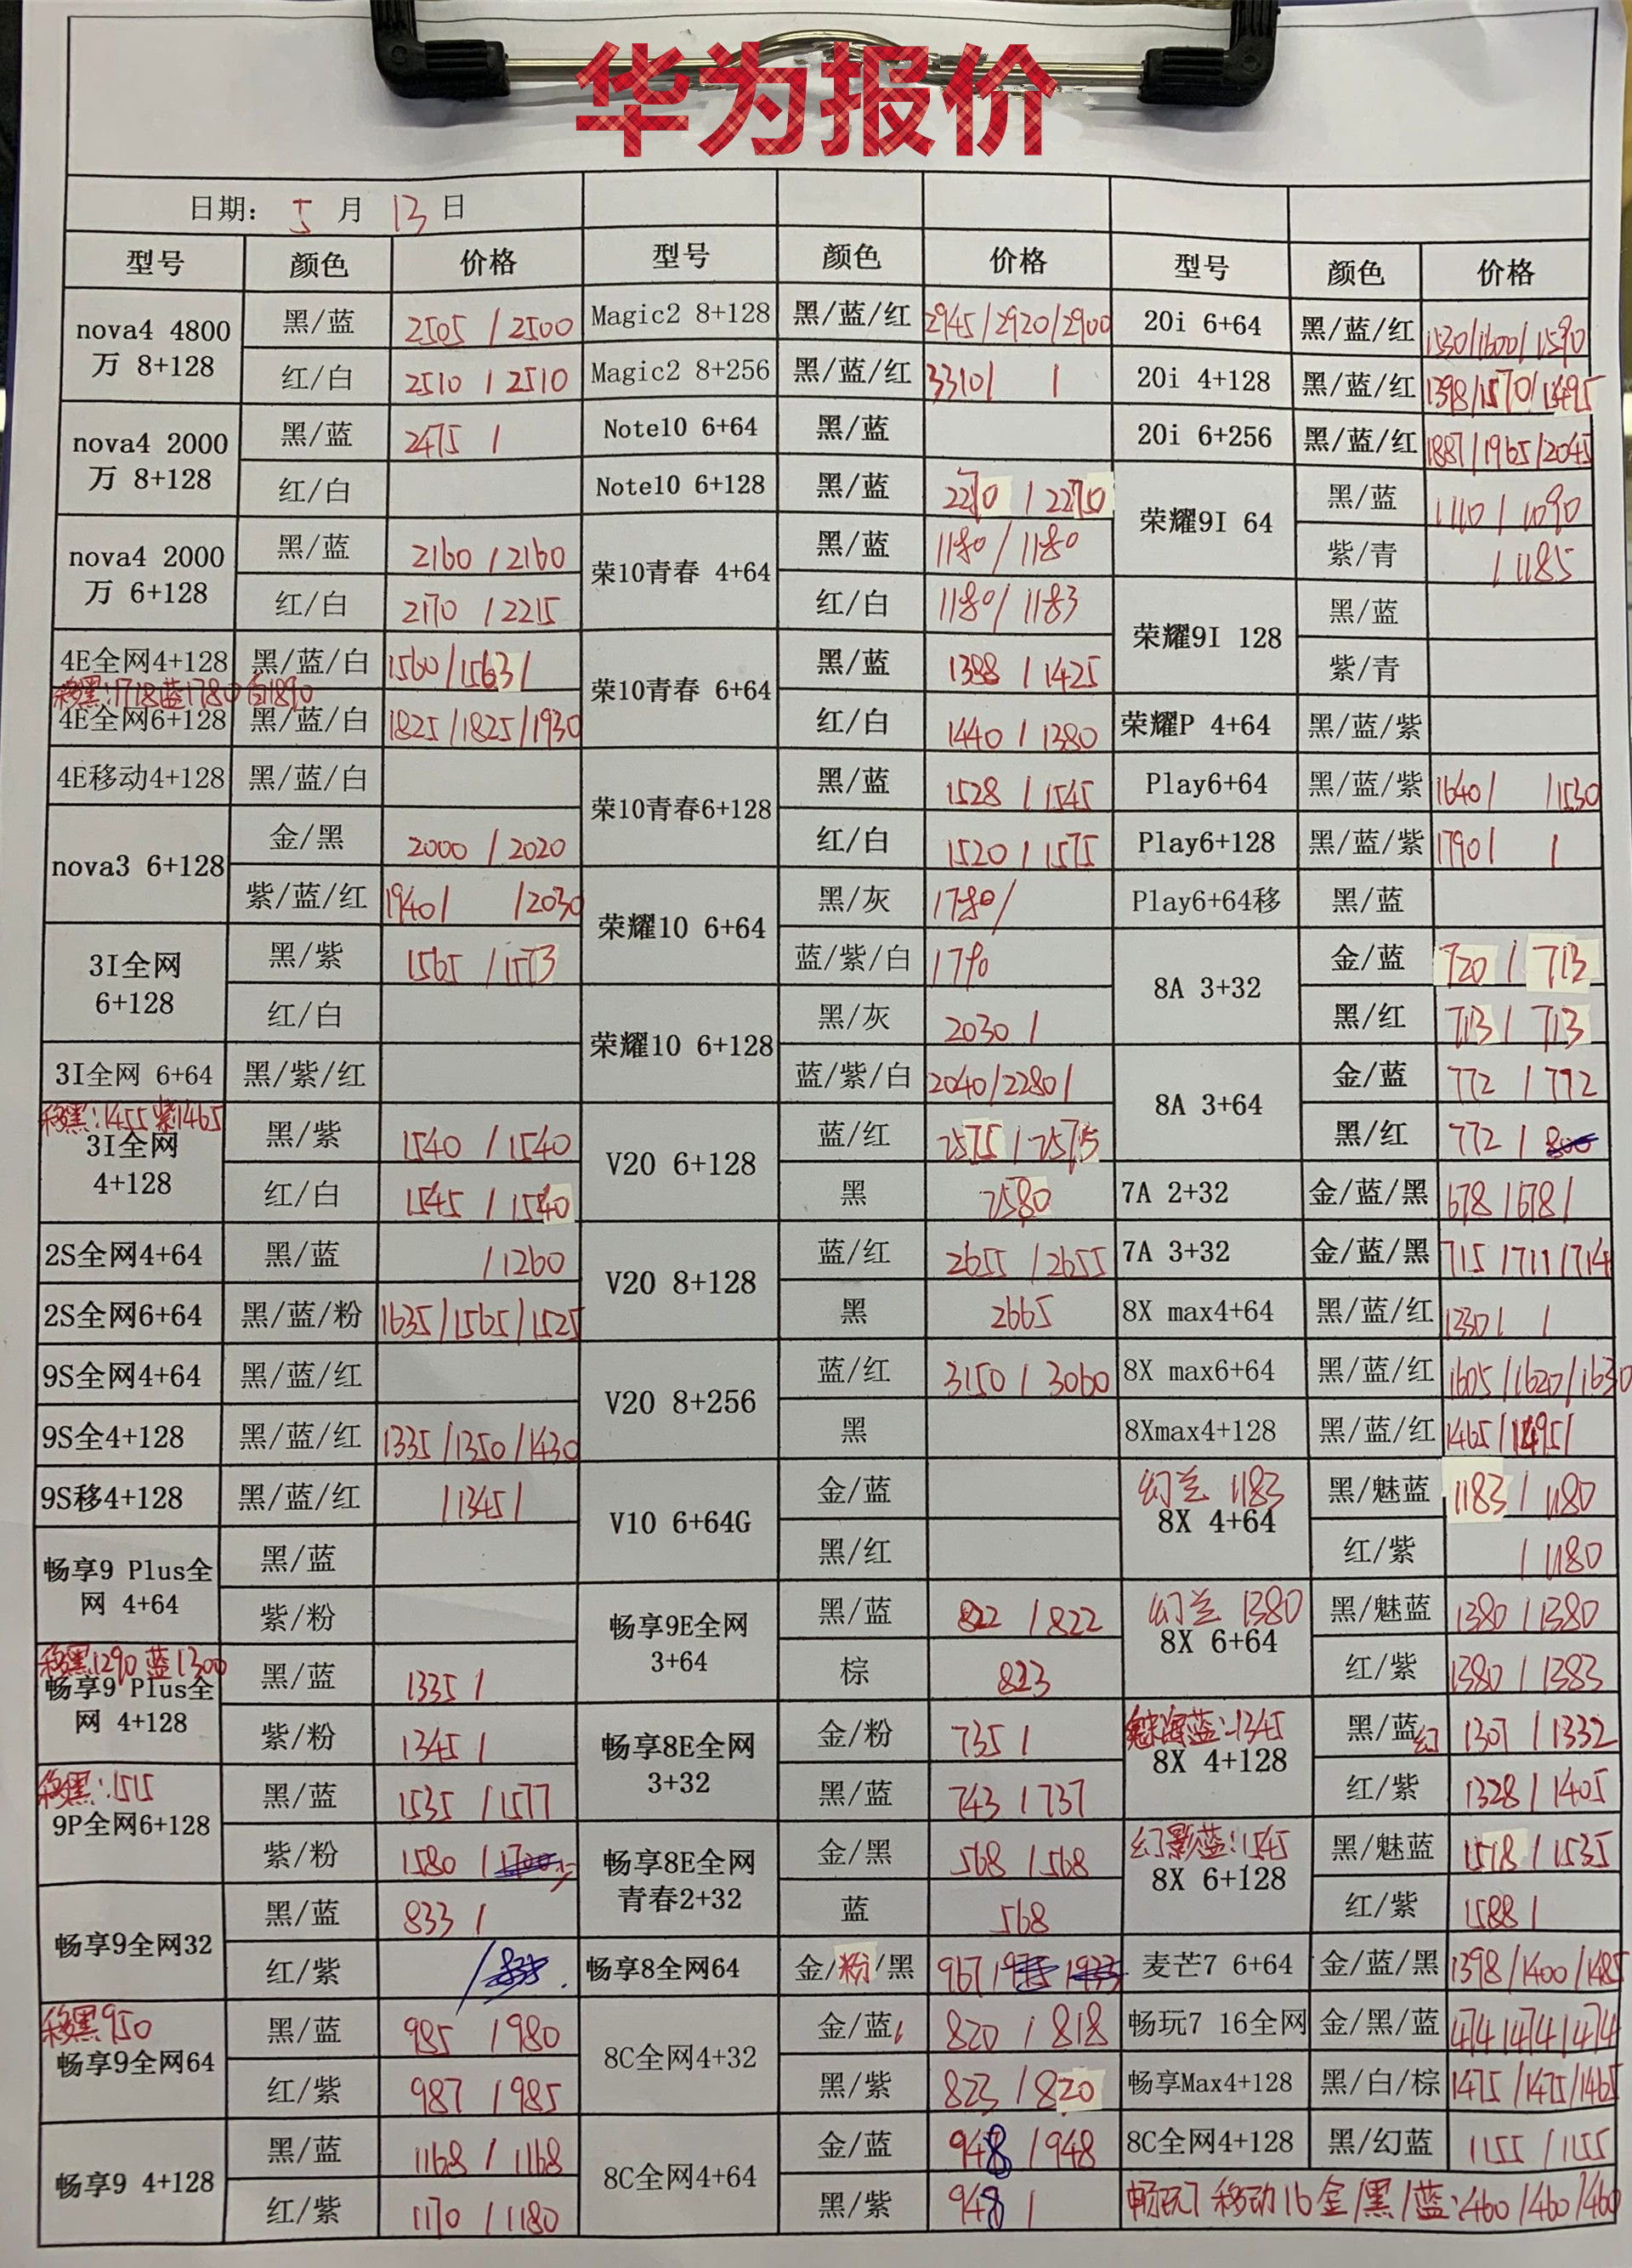 华为报价
日期: 5 月 13 日
型号 颜色 价格 型号 颜色 价格 型号 颜色 价格
nova4 4800万 8+128 黑/蓝 2505 / 2500
红/白 2510 / 2510
nova4 2000万 8+128 黑/蓝 2475 /
红/白
nova4 2000万 6+128 黑/蓝 2160 / 2160
红/白 2170 / 2215
4E全网4+128 黑/蓝/白 1560/1563/
移黑:1718蓝1780 白1890
4E全网6+128 黑/蓝/白 1825/1825/1930
4E移动4+128 黑/蓝/白
nova3 6+128 金/黑 2000 / 2020
紫/蓝/红 1940/ /2030
3I全网 6+128 黑/紫 1565 / 1573
红/白
3I全网 6+64 黑/紫/红
移黑:1455 紫1465
3I全网 4+128 黑/紫 1540 / 1540
红/白 1545 / 1540
2S全网4+64 黑/蓝 / 1260
2S全网6+64 黑/蓝/粉 1635/1565/1525
9S全网4+64 黑/蓝/红
9S全4+128 黑/蓝/红 1335/1350/1430
9S移4+128 黑/蓝/红 /1345/
畅享9 Plus全网 4+64 黑/蓝
紫/粉
移黑1290 蓝1300
畅享9 Plus全网 4+128 黑/蓝 1335 /
紫/粉 1345 /
移黑:1515
9P全网6+128 黑/蓝 1535 / 1577
紫/粉 1580 /
畅享9全网32 黑/蓝 833 /
红/紫 /
移黑950
畅享9全网64 黑/蓝 985 / 980
红/紫 987 / 985
畅享9 4+128 黑/蓝 1168 / 1168
红/紫 1170 / 1180
Magic2 8+128 黑/蓝/红 2945/2920/2900
Magic2 8+256 黑/蓝/红 3310/ /
Note10 6+64 黑/蓝
Note10 6+128 黑/蓝 2270 / 2270
荣10青春 4+64 黑/蓝 1180/ 1180
红/白 1180/ 1183
荣10青春 6+64 黑/蓝 1388 / 1425
红/白 1440 / 1380
荣10青春6+128 黑/蓝 1528 / 1545
红/白 1520 / 1575
荣耀10 6+64 黑/灰 1780/
蓝/紫/白 1790
荣耀10 6+128 黑/灰 2030 /
蓝/紫/白 2040/2280/
V20 6+128 蓝/红 2575 / 2575
黑 2580
V20 8+128 蓝/红 2655 / 2655
黑 2665
V20 8+256 蓝/红 3150 / 3060
黑
V10 6+64G 金/蓝
黑/红
畅享9E全网 3+64 黑/蓝 822 / 822
棕 823
畅享8E全网 3+32 金/粉 735 /
黑/蓝 743 / 737
畅享8E全网青春2+32 金/黑 568 / 568
蓝 568
畅享8全网64 金/粉/黑 967/
8C全网4+32 金/蓝 820 / 818
黑/紫 823 / 820
8C全网4+64 金/蓝 948 / 948
黑/紫 948 /
20i 6+64 黑/蓝/红 1530/1600/1590
20i 4+128 黑/蓝/红 1398/1570/1495
20i 6+256 黑/蓝/红 1887/1965/2045
荣耀9I 64 黑/蓝 1110 / 1090
紫/青 / 1185
荣耀9I 128 黑/蓝
紫/青
荣耀P 4+64 黑/蓝/紫
Play6+64 黑/蓝/紫 1640/ /1530
Play6+128 黑/蓝/紫 1790/ /
Play6+64移 黑/蓝
8A 3+32 金/蓝 720 / 713
黑/红 713 / 713
8A 3+64 金/蓝 772 / 772
黑/红 772 /
7A 2+32 金/蓝/黑 678/678/
7A 3+32 金/蓝/黑 715/711/714
8X max4+64 黑/蓝/红 1330/ /
8X max6+64 黑/蓝/红 1605/1620/1630
8Xmax4+128 黑/蓝/红 1465/1495/
幻兰 1183
8X 4+64 黑/魅蓝 1183 / 1180
红/紫 / 1180
幻兰 1380
8X 6+64 黑/魅蓝 1380 / 1380
红/紫 1380 / 1383
魅海蓝:1345
8X 4+128 黑/蓝幻 1307 / 1332
红/紫 1328 / 1405
幻影蓝:1545
8X 6+128 黑/魅蓝 1518 / 1535
红/紫 1588 /
麦芒7 6+64 金/蓝/黑 1398/1400/1485
畅玩7 16全网 金/黑/蓝 474/474/474
畅享Max4+128 黑/白/棕 1475/1475/1465
8C全网4+128 黑/幻蓝 1155 / 1155
畅玩7 移动16金/黑/蓝:460/460/460